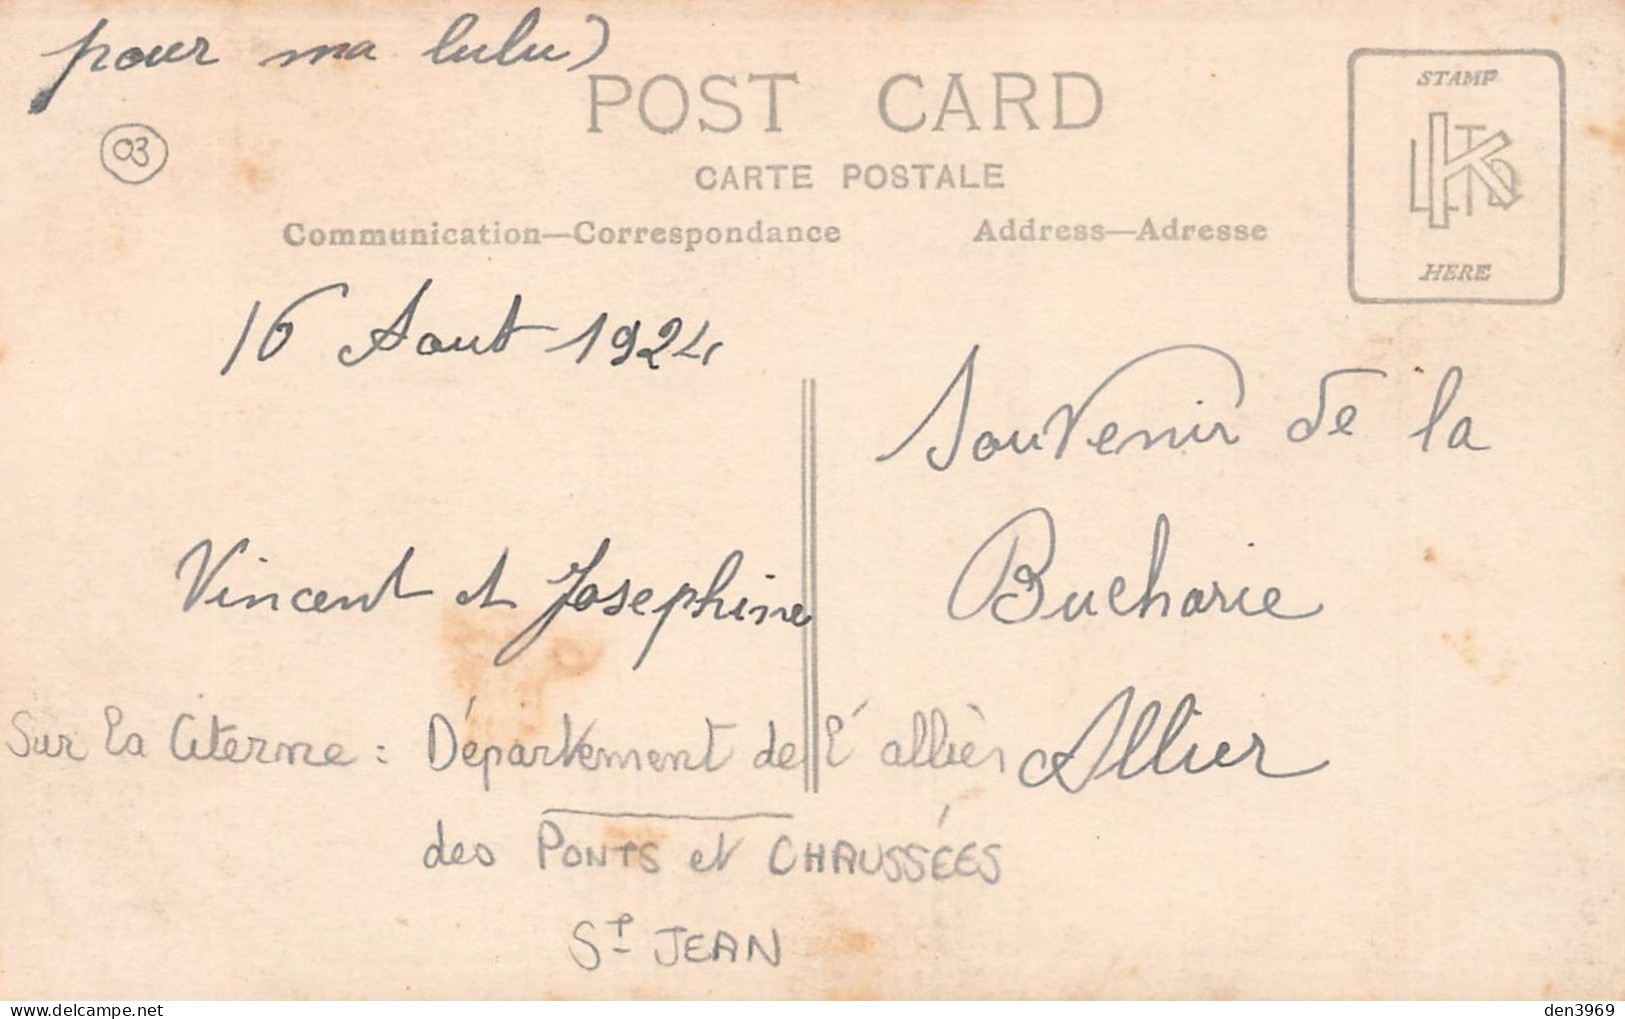 pour ma lulu)
03
POST CARD
CARTE POSTALE
Communication—Correspondance
Address—Adresse
STAMP
HERE
16 Aout 1924
Vincent et Josephine
Souvenir de la
Bucharie
Allier
Sur la Citerne : Département de l'allièr
des PONTS et CHAUSSÉES
St JEAN
den3969